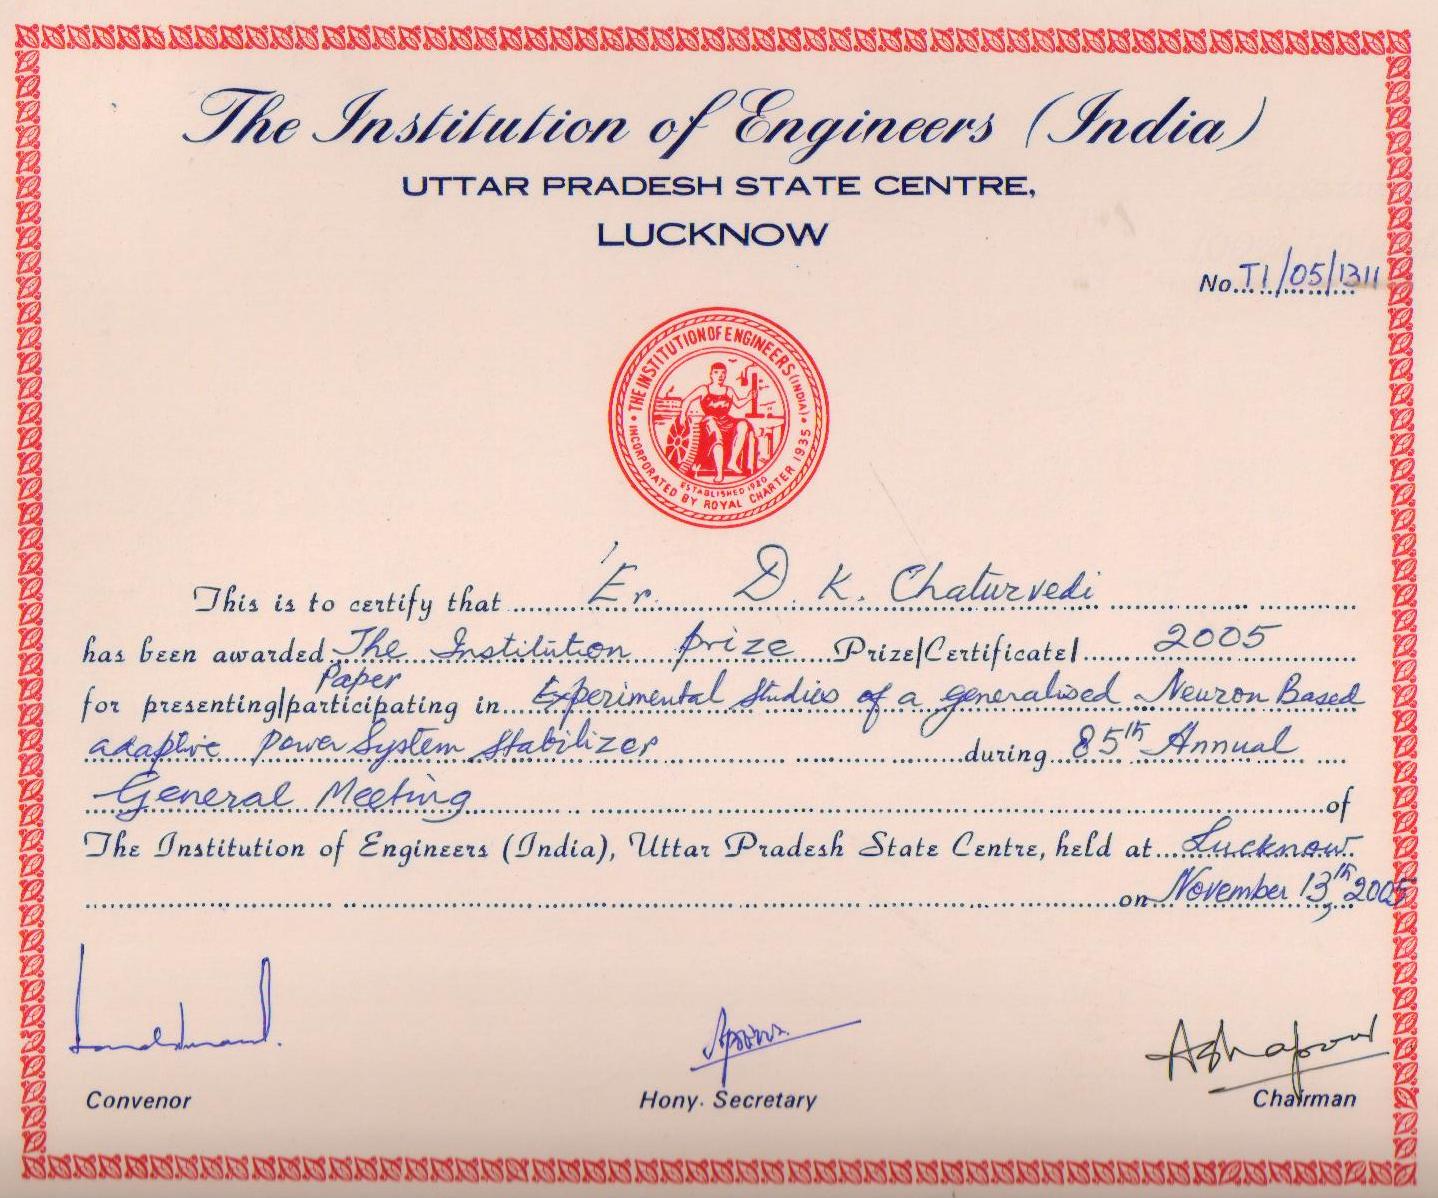 The Institution of Engineers (India)
UTTAR PRADESH STATE CENTRE,
LUCKNOW
No. T1/05/1311
THE INSTITUTION OF ENGINEERS (INDIA)
INCORPORATED BY ROYAL CHARTER 1935
ESTABLISHED 1920
This is to certify that Er. D. K. Chaturvedi
has been awarded The Institution prize Prize/Certificate/ 2005
Paper
for presenting/participating in Experimental Studies of a generalised Neuron Based
adaptive Power System Stabilizer during 85th Annual
General Meeting of
The Institution of Engineers (India), Uttar Pradesh State Centre, held at Lucknow
on November 13th, 2005
Convenor Hony. Secretary Chairman